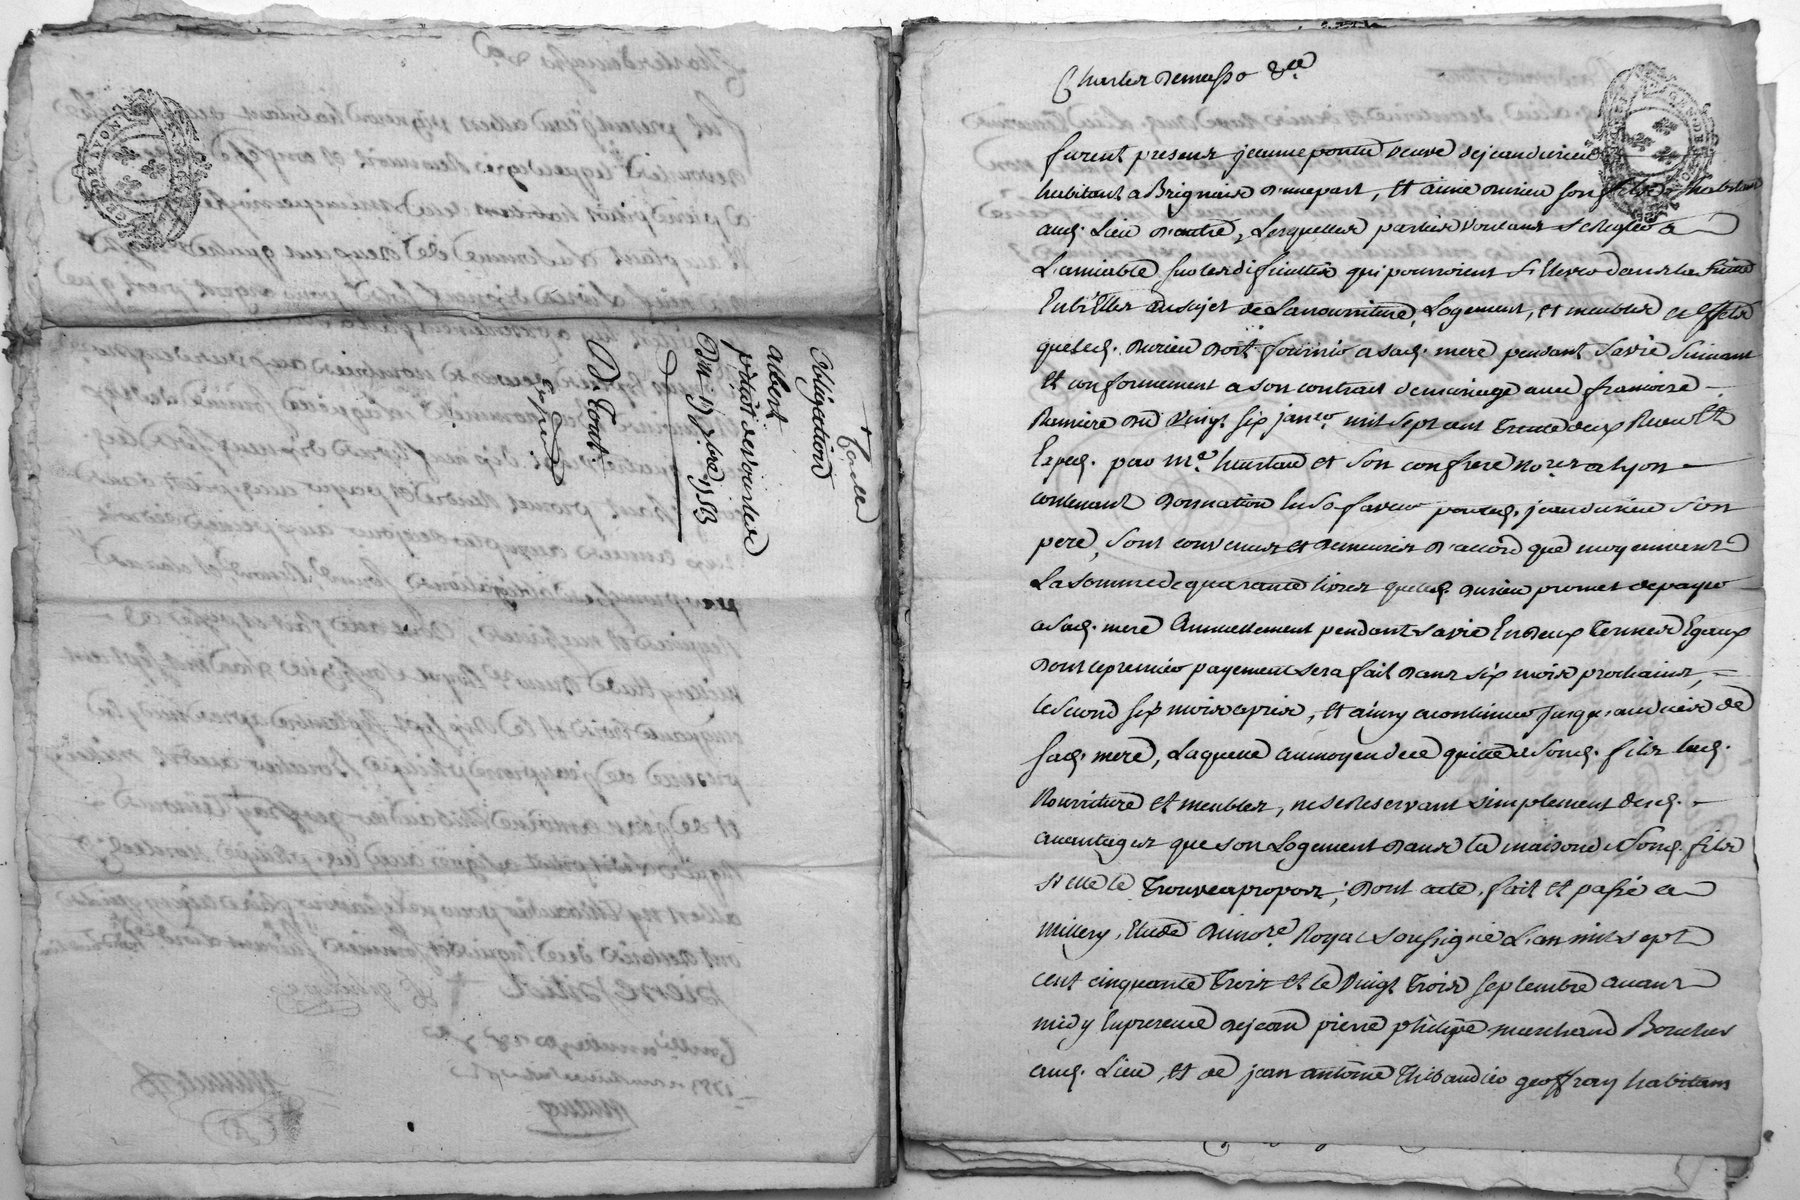 Table
Obligation
albert
pitiot de vourles
Du 17 7bre 1753
D. Cont.
Exped.
GENER. DE LYON
Charles Demasso &ca
furent present jeanne veuve de jean durieu
habitant a Brignais d'une part, Et aimé durieu son fils habitant
aud. Lieu d'autre, Lesquelles parties voulant se regler a
L'amiable sur les dificultés qui pourroient s'Elever dans la suitte
Entr'Elles au sujet de La nourriture, Logement, et meubles et effets
que led. durieu doit fournir a sad. mere pendant sa vie suivant
et conformement a son contrat de mariage avec francoise
du vingt six janer mil sept cent trente deux Receu Et
Exped. par Me et son confrere nores a lyon
contenant donnation En sa faveur par led. jean durieu son
pere, sont convenus et demeurés d'accord que moyennant
La somme de quarante livres que led. durieu promet de payer
a sad. mere Annuellement pendant sa vie En deux termes Egaux
dont le premier payement sera fait dans six mois prochains,
le second six mois apres, et ainsy a continuer jusqu'au deces de
sad. mere, Laquelle au moyen de ce quitte sond. fils lad.
Nourriture et meubles, ne se Reservant simplement desd.
avantages que son Logement dans la maison de sond. fils
si elle le trouve a propos; dont acte, fait et passé a
millery, Etude du nore Royal soussigné L'an mil sept
cent cinquante trois et le vingt trois septembre avant
midy En presence de jean pierre philipe marchand Boucher
aud. Lieu, et de jean antoine Thibaudier geoffray habitans